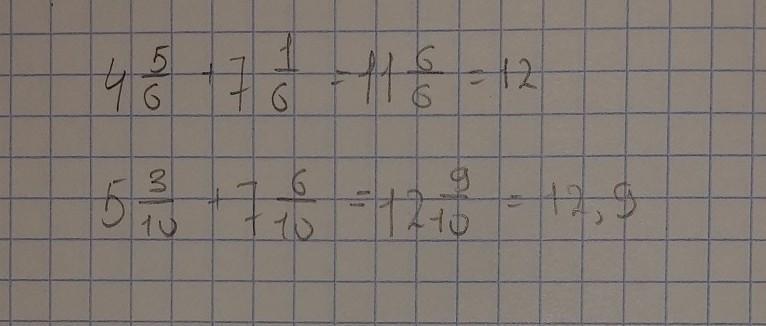 4 5/6 + 7 1/6 = 11 6/6 = 12
5 3/10 + 7 6/10 = 12 9/10 = 12,9